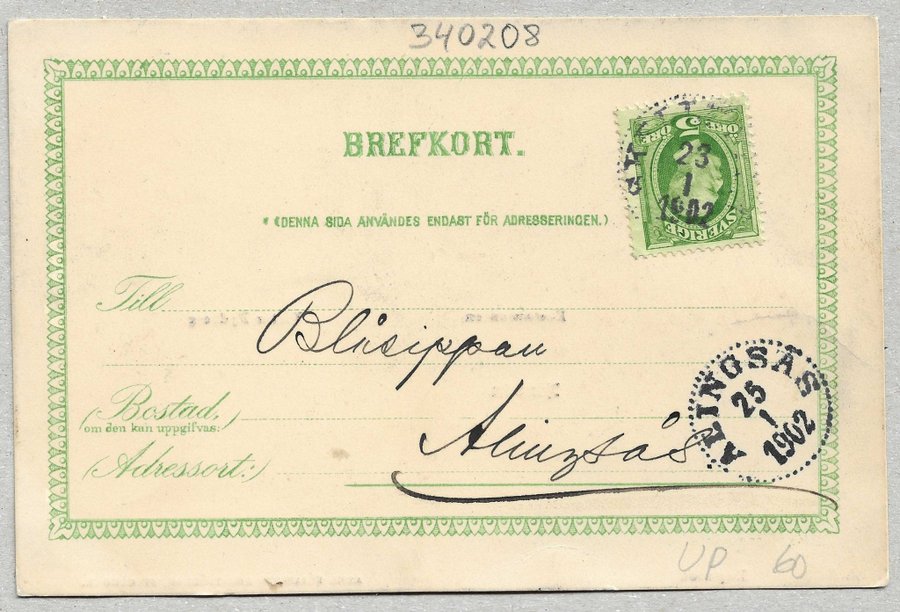 340208
BREFKORT.
5
ÖRE ÖRE
SVERIGE
23
1
1902
* (DENNA SIDA ANVÄNDES ENDAST FÖR ADRESSERINGEN.)
Till
Blåsippan
(Bostad,
om den kan uppgifvas:)
(Adressort:)
Alingsås
ALINGSÅS
25
1
1902
UP 60